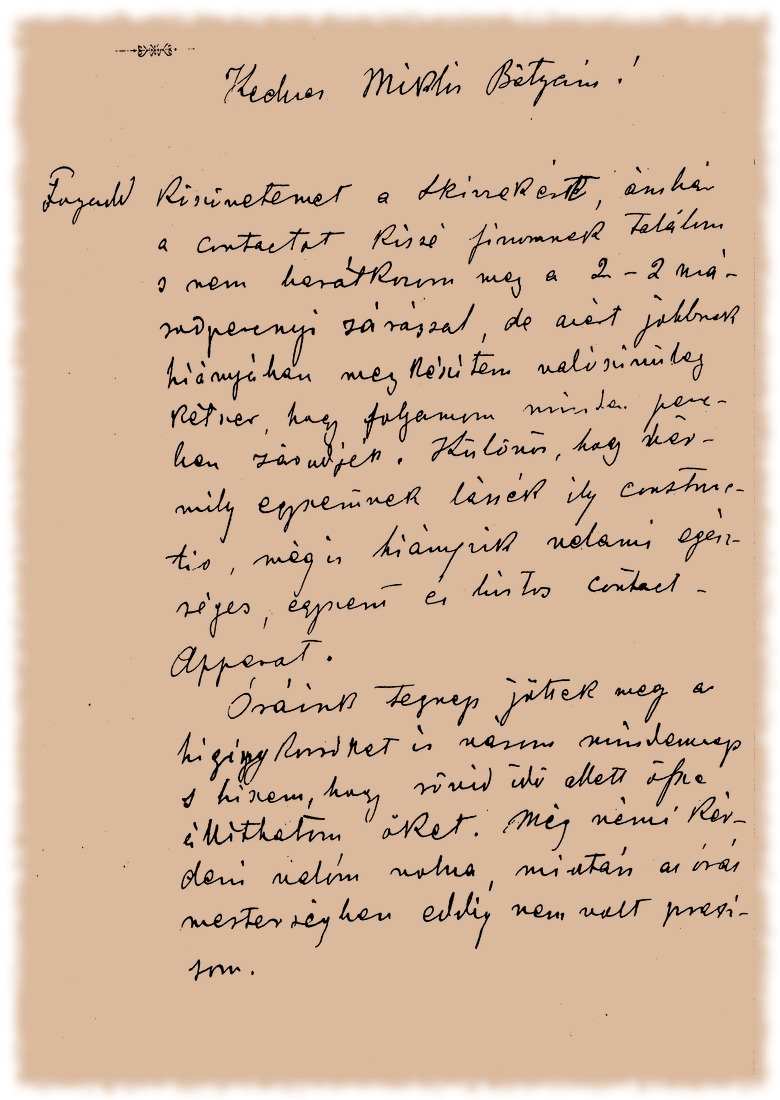 Kedves Miklós Bátyám!
Fogadd köszönetemet a skizzekért, ámbár
a contactot kissé finomnak találom
s nem barátkozom meg a 2-2 má-
sodpercnyi zárással, de azért jobbnak
hiányában megkészítem valószínűleg
kétszer, hogy folyamom minden perc-
ben záródjék. Különös, hogy bár-
mily egyszerűnek lássék ily construc-
tio, mégis hiányzik valami egész-
séges, egyszerű és biztos contact-
Apparat.
Óráink tegnap jöttek meg a
higany hordókat is várom mindennap
s hiszem, hogy rövid idő alatt össze
állíthatom őket. Még némi kér-
deni valóm volna, miután az órás
mesterségben eddig nem volt praxi-
som.